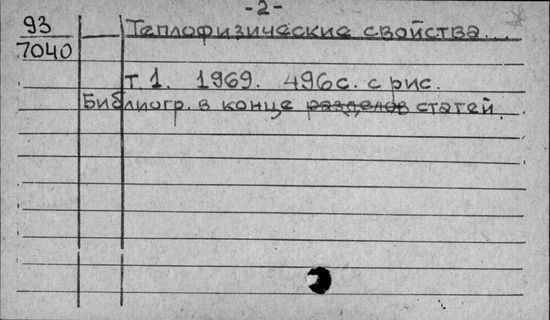 -2-
93
7040
Теплофизические свойства...
т. 1. 1969. 496с. с рис.
Библиогр. в конце разделов статей.